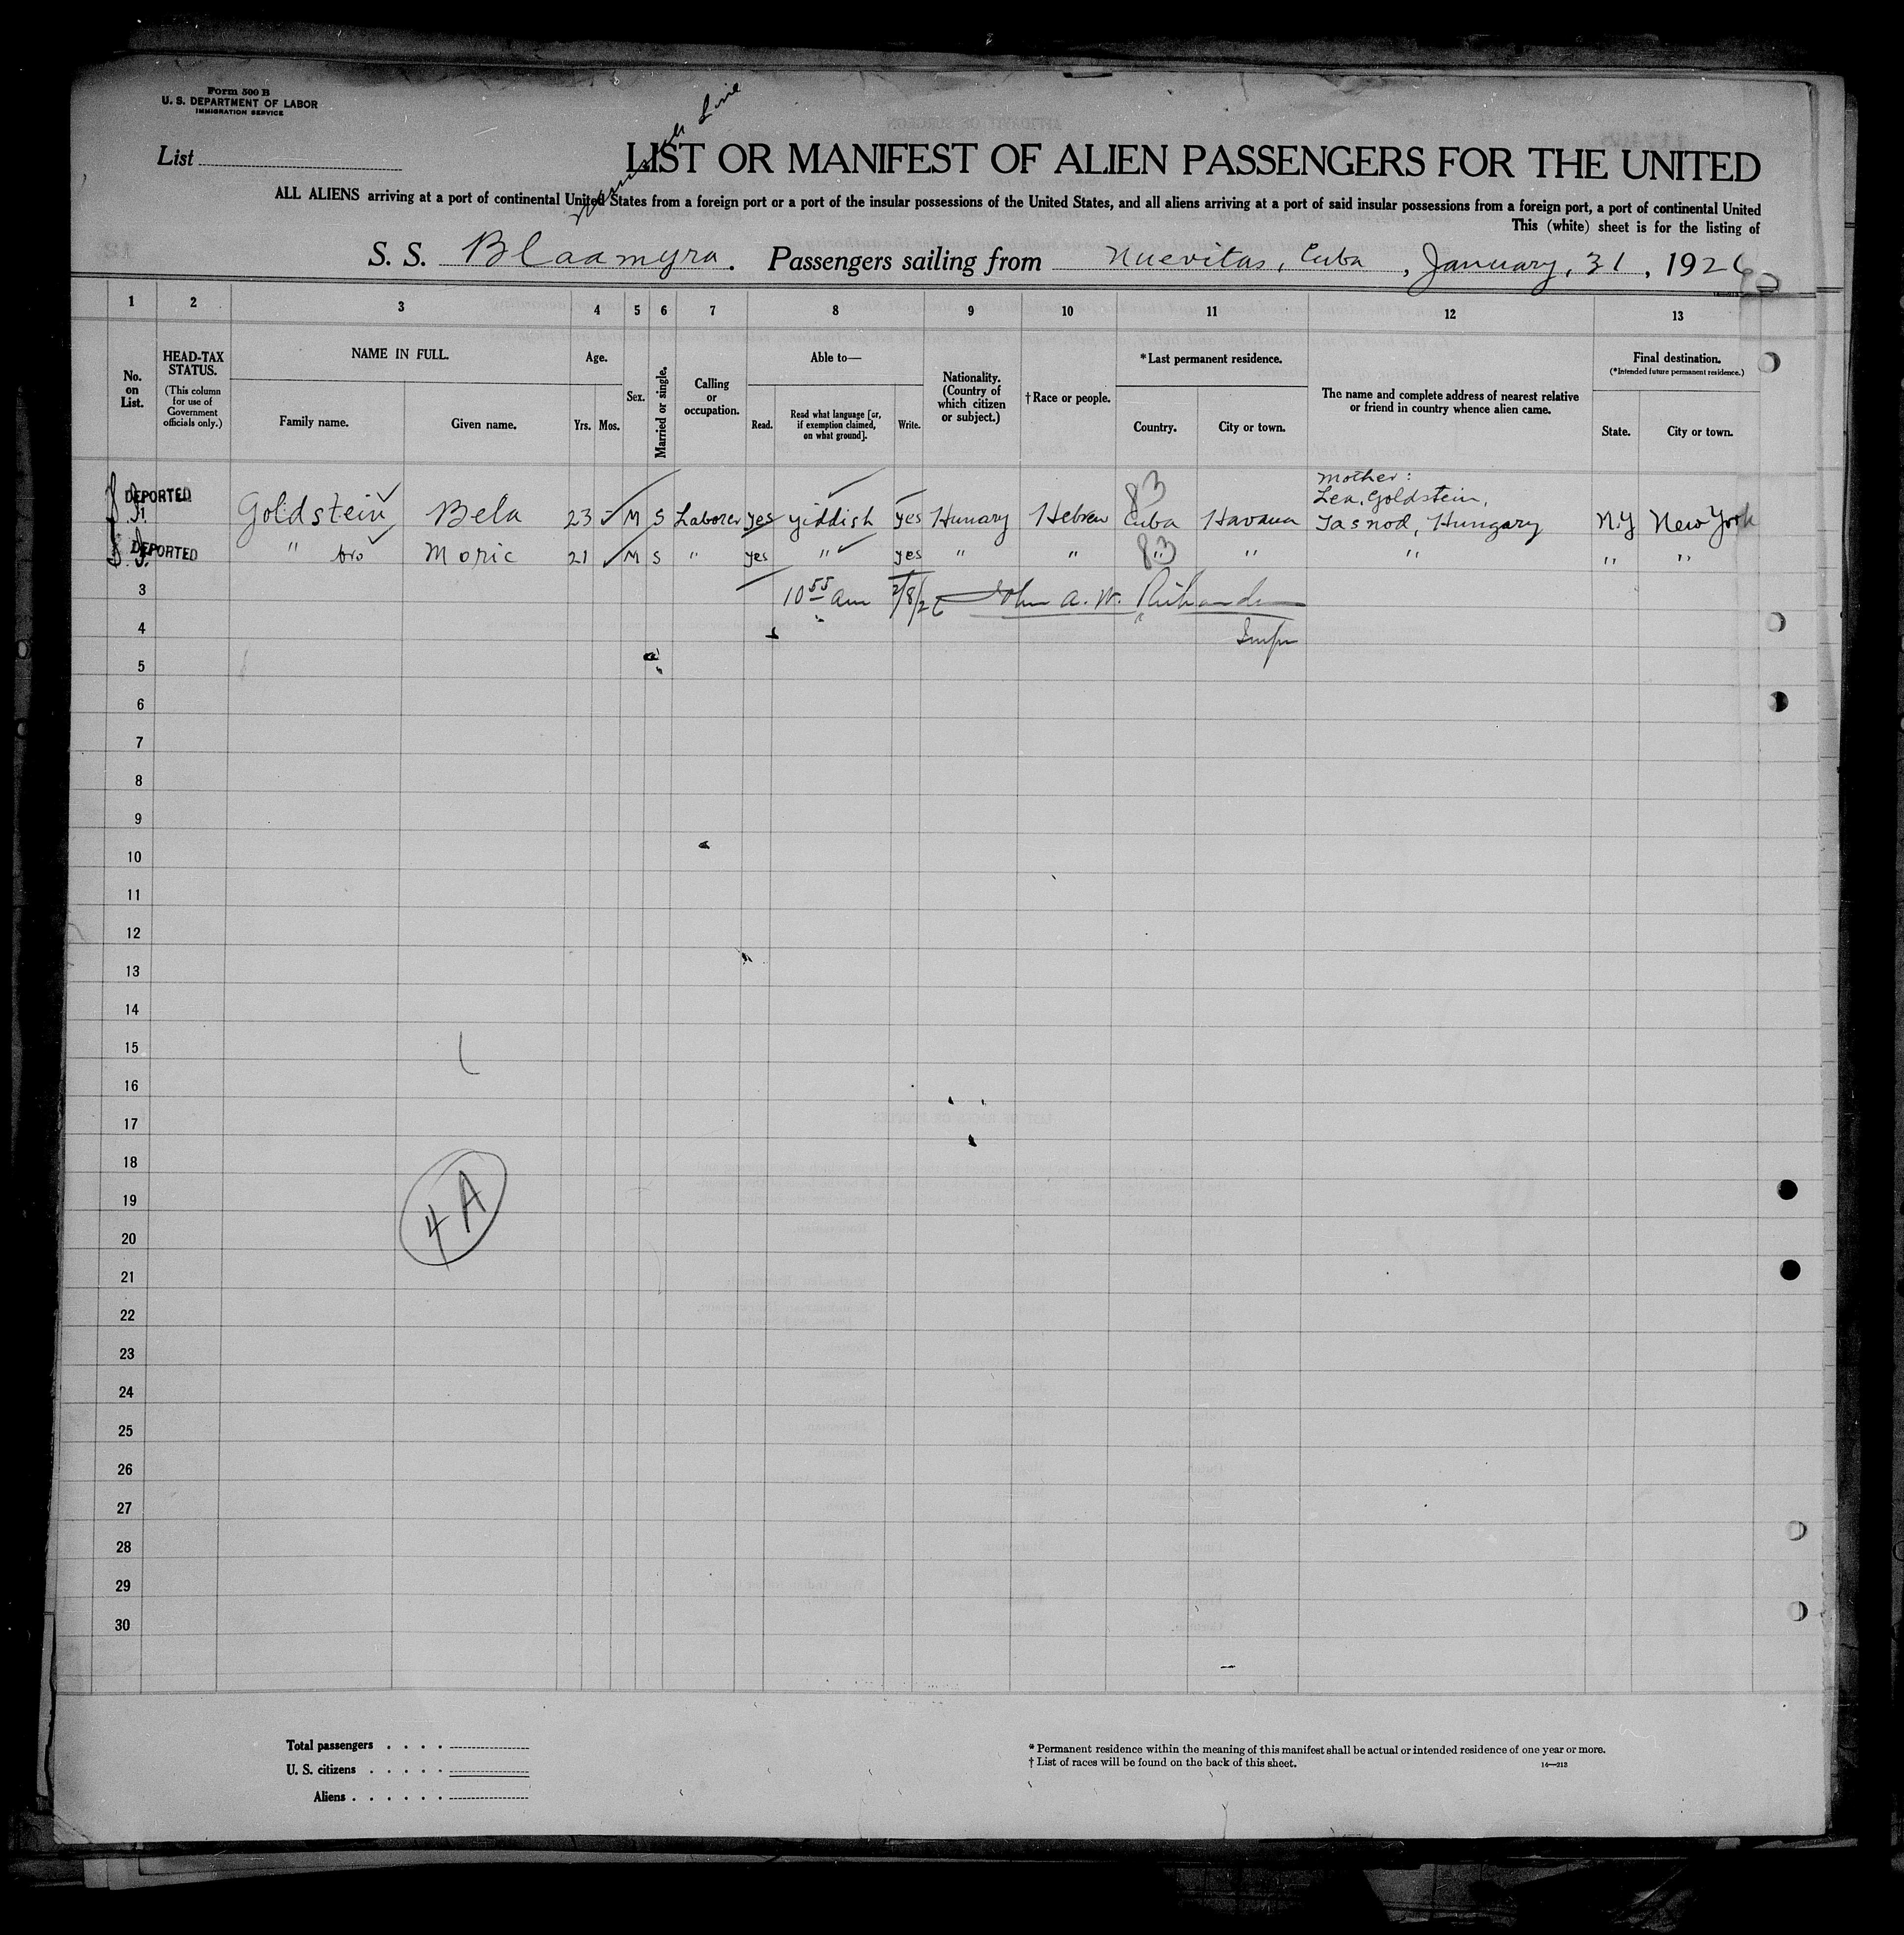 Form 500 B
U. S. DEPARTMENT OF LABOR
IMMIGRATION SERVICE
List
Line
LIST OR MANIFEST OF ALIEN PASSENGERS FOR THE UNITED
ALL ALIENS arriving at a port of continental United States from a foreign port or a port of the insular possessions of the United States, and all aliens arriving at a port of said insular possessions from a foreign port, a port of continental United
This (white) sheet is for the listing of
S. S. Blaamyra. Passengers sailing from Nuevitas, Cuba, January, 31, 1926
1 2 3 4 5 6 7 8 9 10 11 12 13
No. on List.
HEAD-TAX STATUS.
(This column for use of Government officials only.)
NAME IN FULL.
Family name. Given name.
Age.
Yrs. Mos.
Sex.
Married or single.
Calling or occupation.
Able to—
Read. Read what language [or, if exemption claimed, on what ground]. Write.
Nationality. (Country of which citizen or subject.)
†Race or people.
*Last permanent residence.
Country. City or town.
The name and complete address of nearest relative or friend in country whence alien came.
Final destination.
(*Intended future permanent residence.)
State. City or town.
Mother:
83 Lea, Goldstein,
DEPORTED
1 Goldstein Bela 23 M S Laborer yes yiddish yes Hunary Hebrew Cuba Havana Tasnod, Hungary N.Y New York
DEPORTED " bro Moric 21 M S " yes " yes " " 83 " " " " "
3 10 55 am 2/8/26 John A. W. Richards
4 Inspr
5
6
7
8
9
10
11
12
13
14
15
16
17
18
19
4A
20
21
22
23
24
25
26
27
28
29
30
Total passengers . . . .
U. S. citizens . . . . .
Aliens . . . . . .
* Permanent residence within the meaning of this manifest shall be actual or intended residence of one year or more.
† List of races will be found on the back of this sheet.
14—213